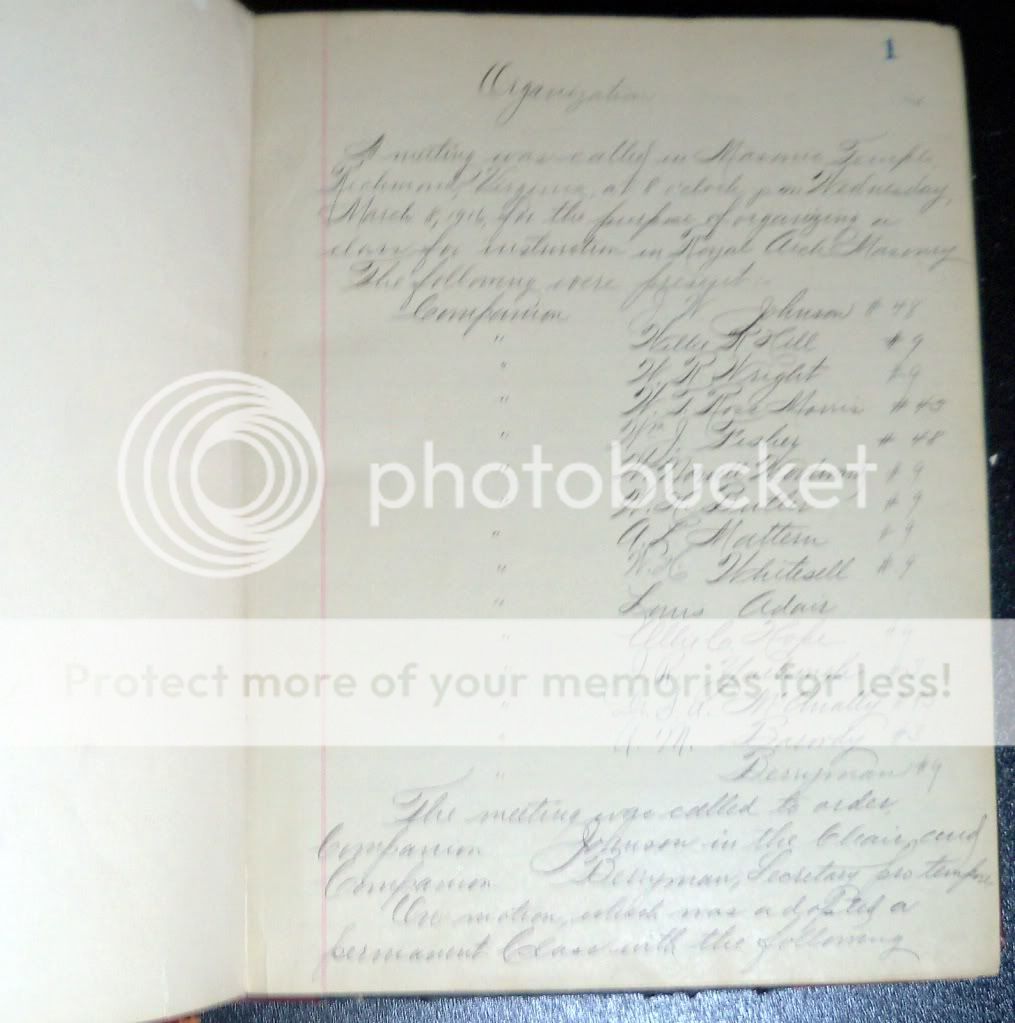 1
Organization
A meeting was called in Masonic Temple,
Richmond, Virginia, at 8 o'clock, p.m. Wednesday,
March 8, 1916, for the purpose of organizing a
class for instruction in Royal Arch Masonry
The following were present:-
Companion J. W. Johnson # 48
" Willis R Hill # 9
" W. R Wright # 9
" W. T. Ross Morris # 43
" Wm J. Fisher # 48
" # 9
" Butler # 9
" A. L. Mattern # 9
" W. H. Whitesell # 9
" Louis Adair
" C. Hope # 9
" R.
" A. McAnally
" A. M.
" Berryman # 9
The meeting was called to order,
Companion Johnson in the Chair, and
Companion Berryman, Secretary pro tempore
On motion, which was adopted a
permanent Class with the following
photobucket
Protect more of your memories for less!